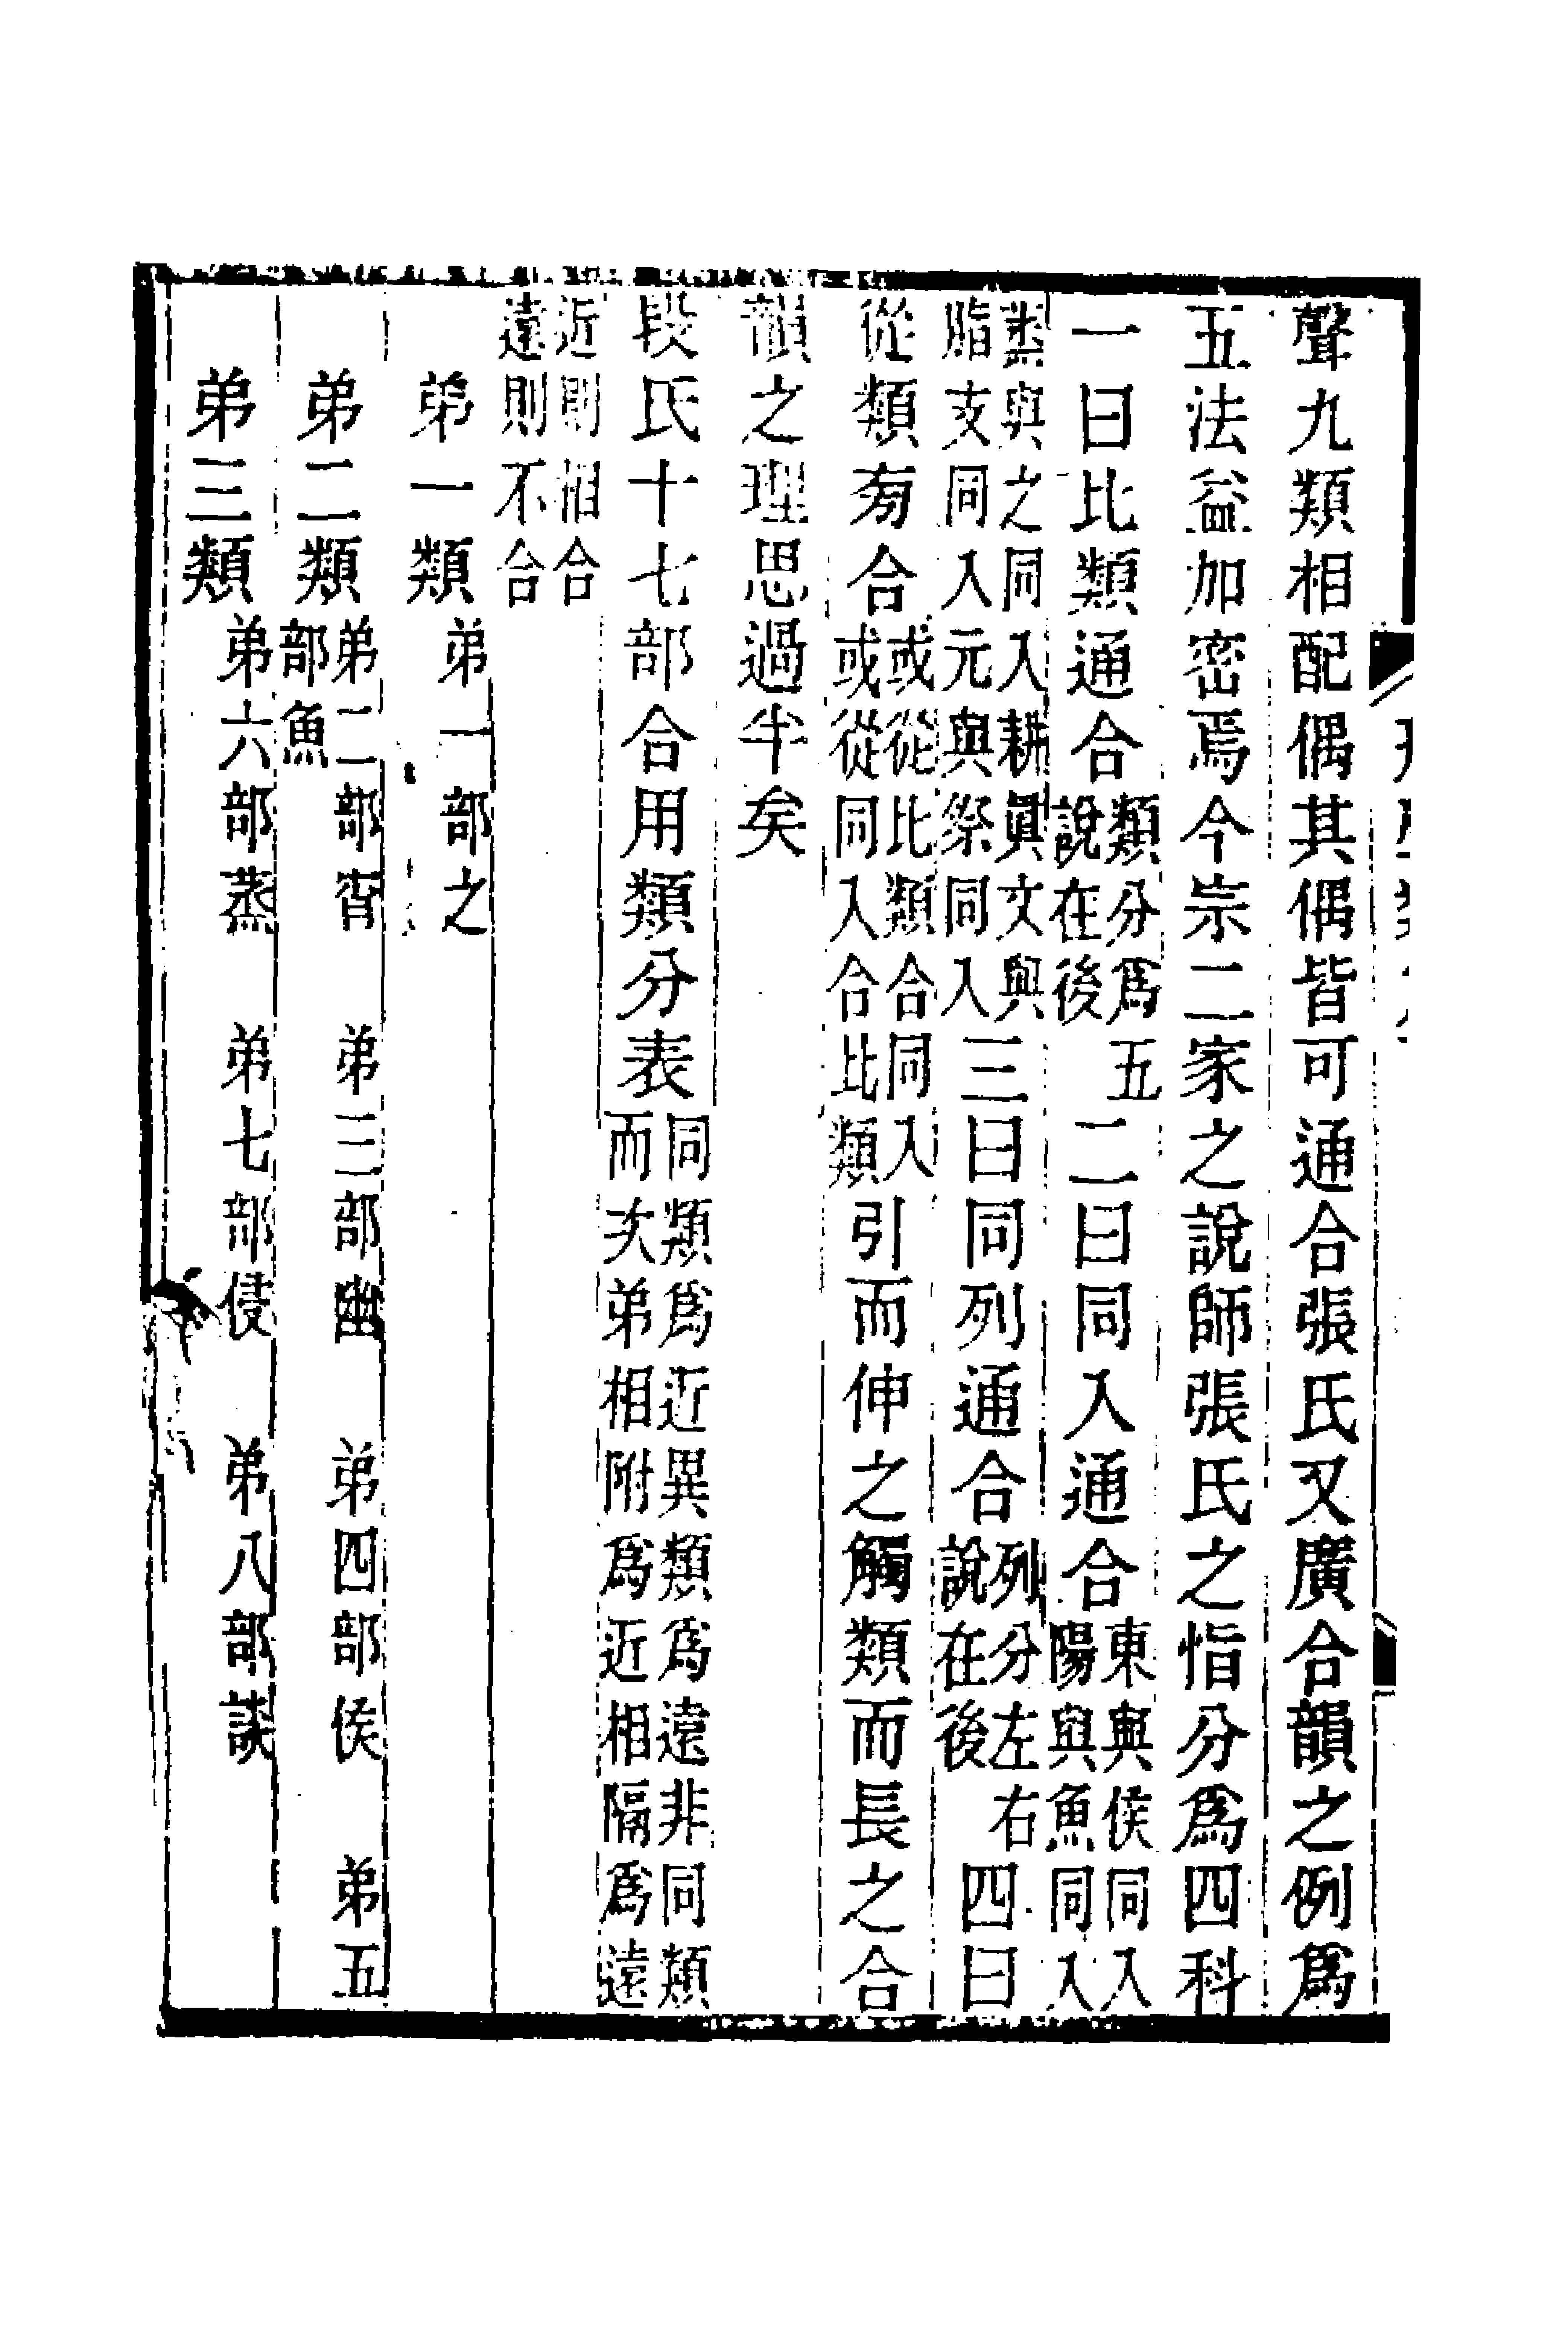 聲九類相配偶其偶皆可通合張氏又廣合韻之例爲
五法益加密焉今宗二家之說師張氏之恉分爲四科
一曰比類通合類分爲五說在後二曰同入通合東與侯同入陽與魚同入
蒸與之同入耕眞文與脂支同入元與祭同入三曰同列通合列分左右說在後四曰
從類旁合或從比類合同入或從同入合比類引而伸之觸類而長之合
韻之理思過半矣
段氏十七部合用類分表同類爲近異類爲遠非同類而次弟相附爲近相隔爲遠
近則相合遠則不合
弟一類 弟一部之
弟二類 弟二部宵 弟三部幽 弟四部侯 弟五部魚
弟三類 弟六部蒸 弟七部侵 弟八部談